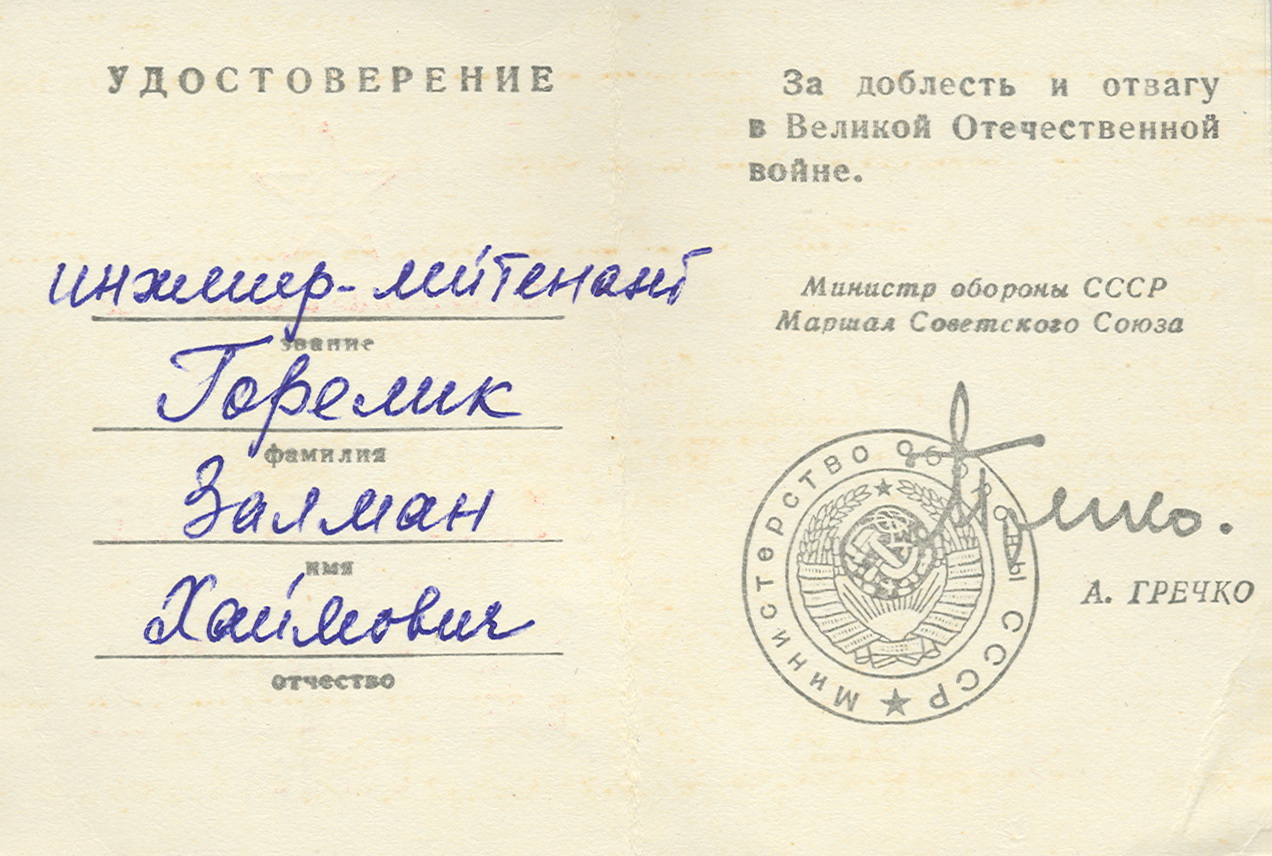 УДОСТОВЕРЕНИЕ
инженер-лейтенант
звание
Горелик
фамилия
Залман
имя
Хаймович
отчество
За доблесть и отвагу
в Великой Отечественной
войне.
Министр обороны СССР
Маршал Советского Союза
Министерство Обороны СССР
А. ГРЕЧКО